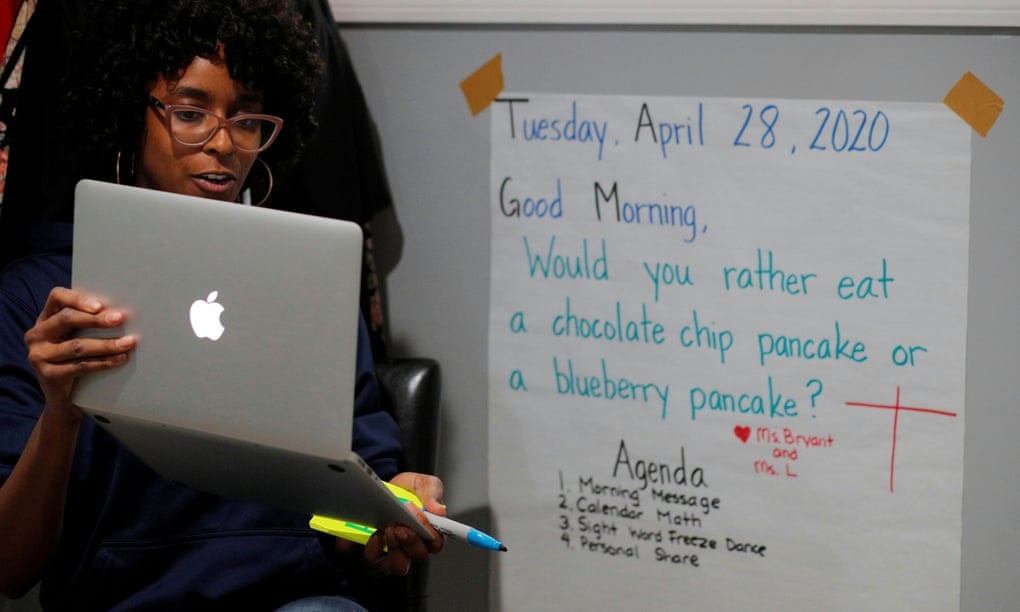 Tuesday, April 28, 2020
Good Morning,
Would you rather eat
a chocolate chip pancake or
a blueberry pancake?
Ms. Bryant
and
Ms. L
Agenda
1. Morning Message
2. Calendar Math
3. Sight Word Freeze Dance
4. Personal Share